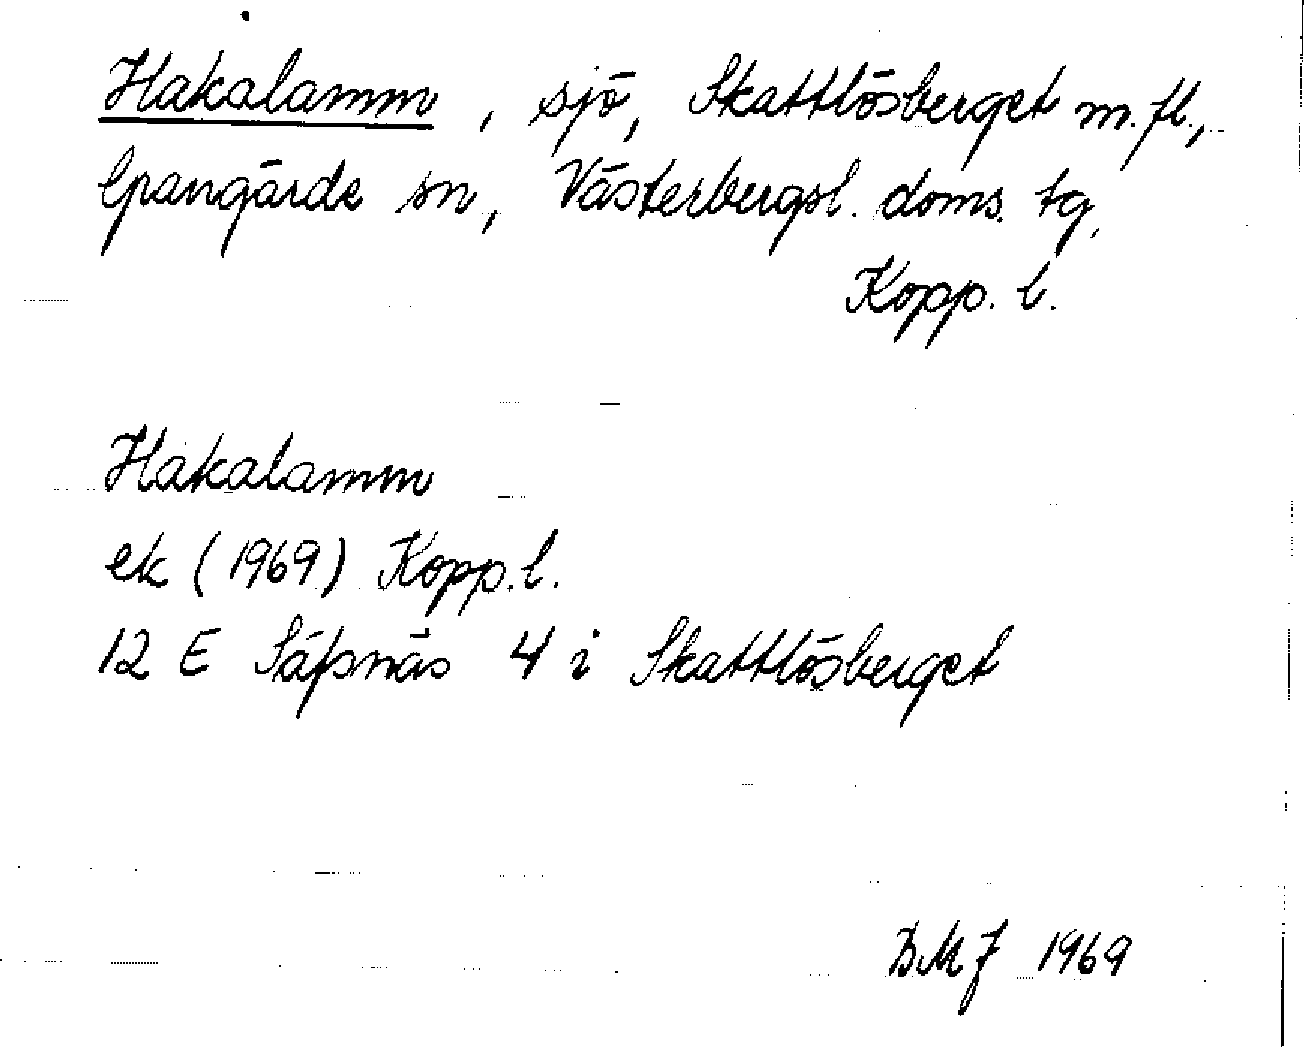 Hakalamm, sjö, Skattlösberget m.fl.,
Grangärde sn, Västerbergsl. doms. tg,
Kopp. l.
Hakalamm
ek (1969) Kopp. l.
12 E Säfsnäs 4 i Skattlösberget
BMJ 1969